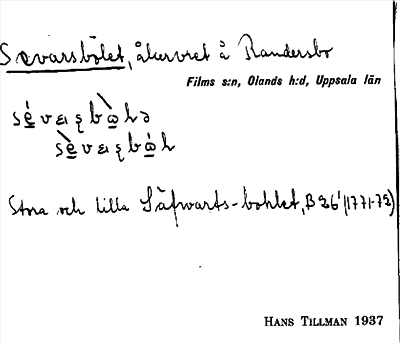 Sævarsbölet, åkervret å Randersbo
Films s:n, Olands h:d, Uppsala län
Stora och lilla Säfwarts-bohlet, B 26' (1771-72)
HANS TILLMAN 1937